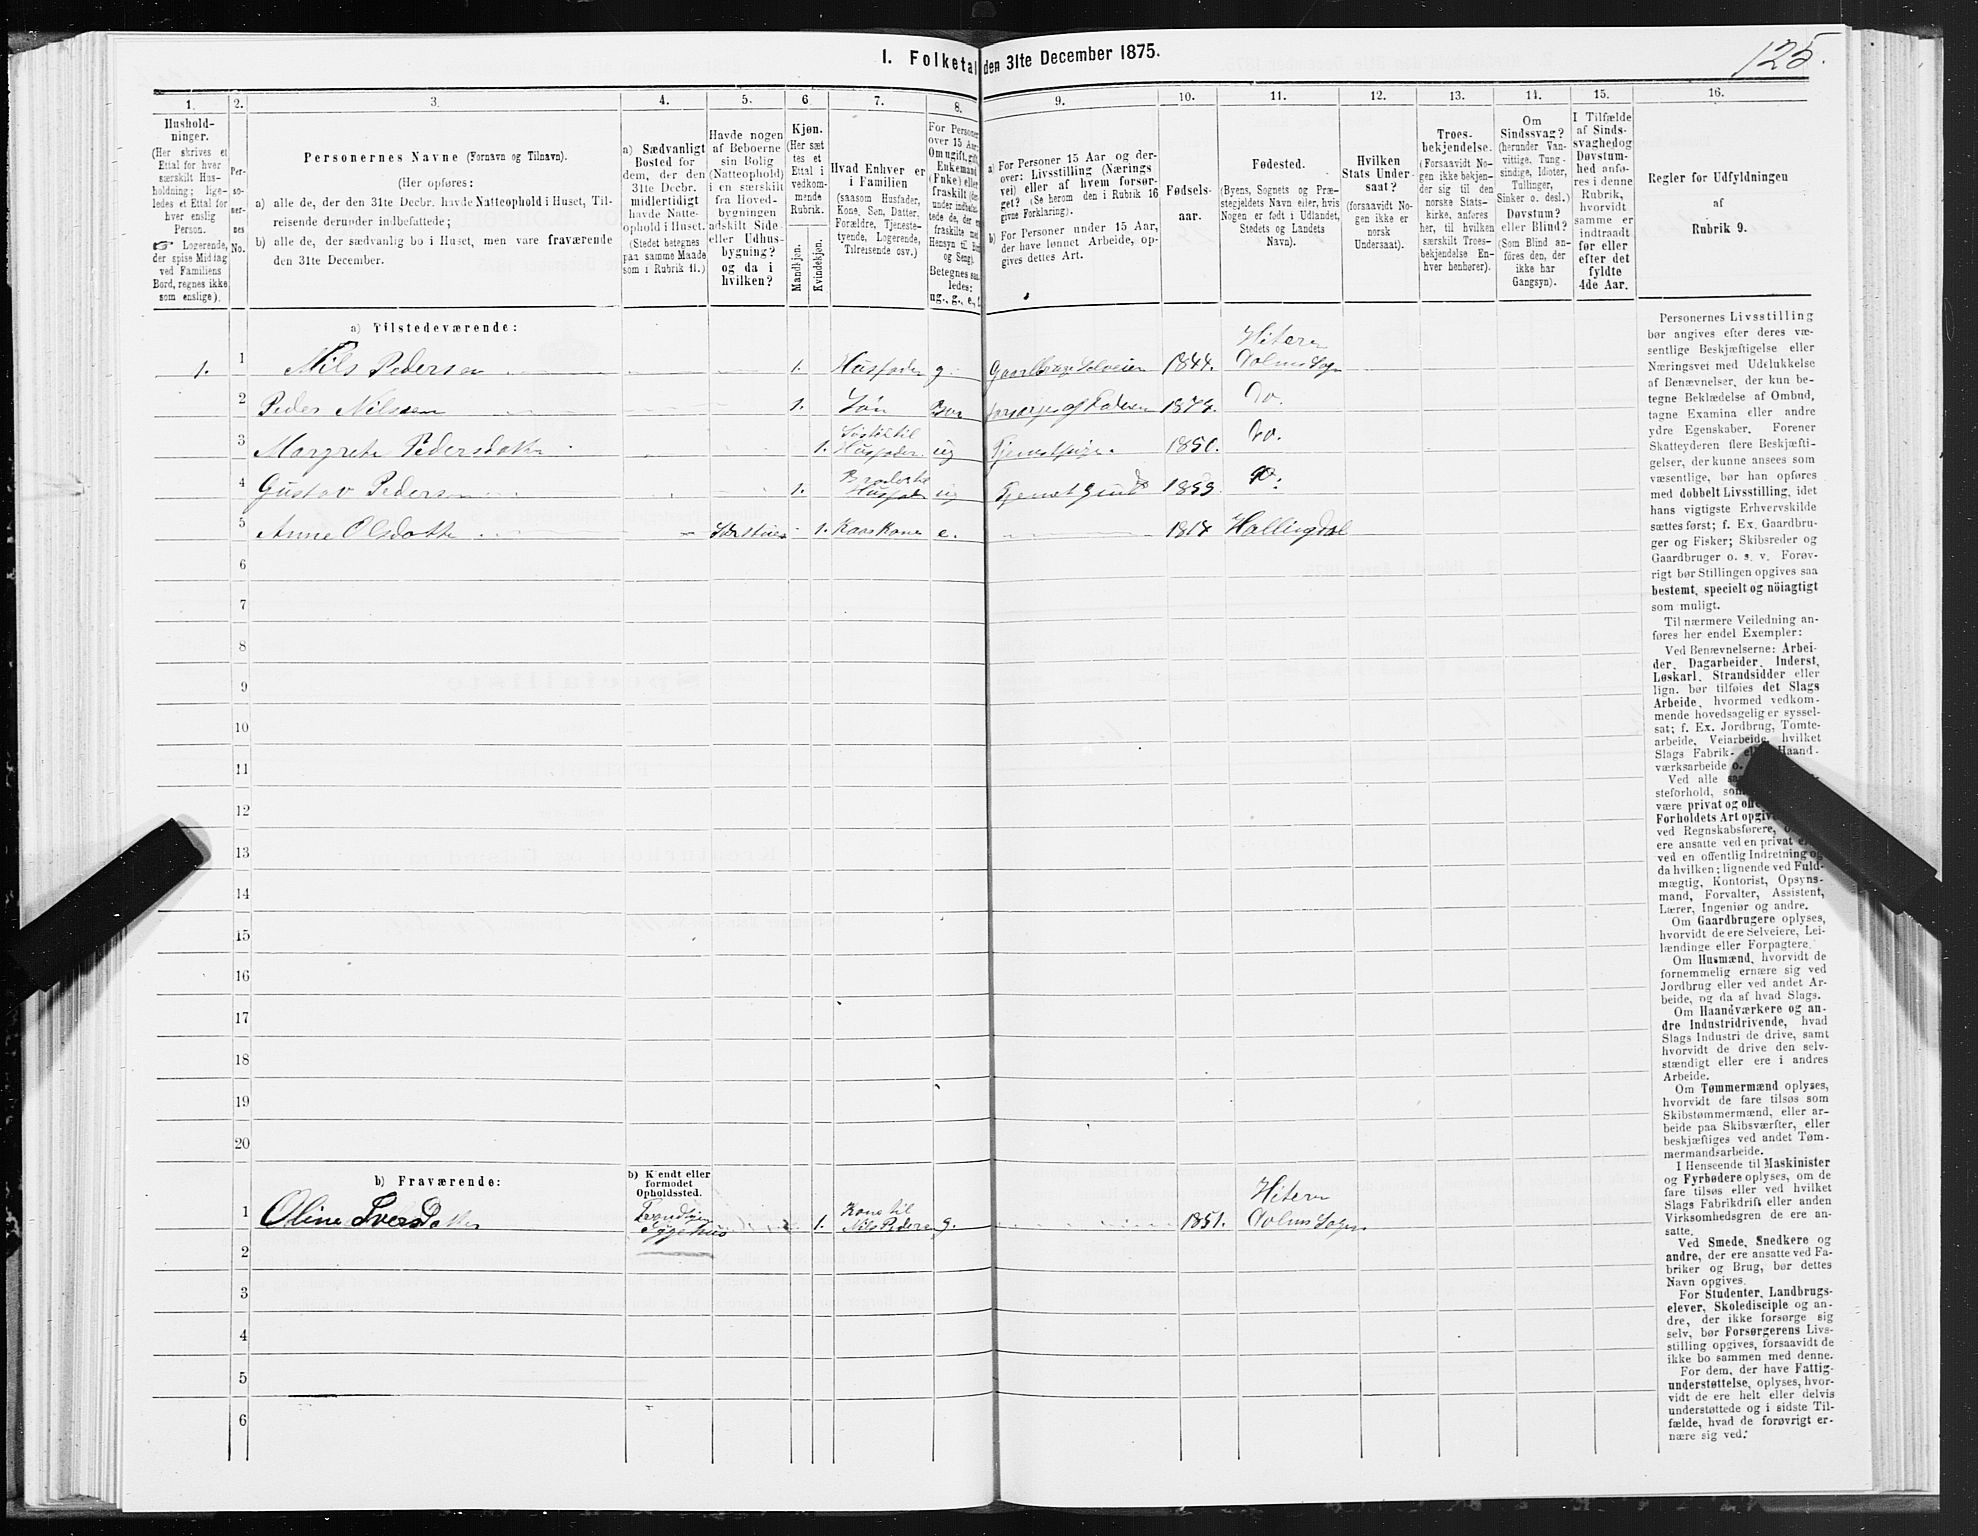 125.
I. Folketal den 31te December 1875.
1. 2. 3. 4. 5. 6 7. 8. 9. 10. 11. 12. 13. 14. 15. 16.
Hushold-
ninger.
(Her skrives et
Ettal for hver
særskilt Hus-
holdning; lige-
ledes et Ettal for
hver enslig
Person.
☞ Logerende,
der spise Middag
ved Familiens
Bord, regnes ikke
som enslige).
Per-
so-
ner-
nes
No.
Personernes Navne (Fornavn og Tilnavn).
(Her opføres:
a) alle de, der den 31te Decbr. havde Natteophold i Huset, Til-
reisende derunder indbefattede;
b) alle de, der sædvanlig bo i Huset, men vare fraværende
den 31te December.
a) Sædvanligt
Bosted for
dem, der den
31te Decbr.
midlertidigt
havde Natte-
ophold i Huset.
(Stedet betegnes
paa samme Maade
som i Rubrik 11.)
Havde nogen
af Beboerne
sin Bolig
(Natteophold)
i en særskilt
fra Hoved-
bygningen
adskilt Side-
eller Udhus-
bygning?
og da i
hvilken?
Kjøn.
(Her sæt
tes et
Ettal i
vedkom-
mende
Rubrik.
Mandkjøn.
Kvindekjøn.
Hvad Enhver er
i Familien
(saasom Husfader,
Kone, Søn, Datter,
Forældre, Tjeneste-
tyende, Logerende,
Tilreisende osv.)
For Personer
over 15 Aar:
Om ugift, gift,
Enkemand
(Enke) eller
fraskilt
Betegnes saa-
ledes:
ug., g., e., f.
a) For Personer 15 Aar og der-
over: Livsstilling (Nærings
vei) eller af hvem forsør-
get? (Se herom den i Rubrik 16
givne Forklaring).
b) For Personer under 15 Aar,
der have lønnet Arbeide, op-
gives dettes Art.
Fødsels-
aar.
Fødested.
(Byens, Sognets og Præ-
stegjeldets Navn eller, hvis
Nogen er født i Udlandet,
Stedets og Landets
Navn).
Hvilken
Stats Under-
saat?
(forsaavidt No-
gen ikke er
norsk
Undersaat).
Troes-
bekjendelse.
(Forsaavidt No-
gen ikke bekjen-
der sig til den
norske Stats-
kirke, anføres
her, til hvilken
særskilt Troes-
bekjendelse En-
hver henhører).
Om
Sindssvag?
(herunder Van-
vittige, Tung-
sindige, Idioter,
Tullinger,
Sinker o. desl.)
Døvstum?
eller Blind?
(Som Blind an-
føres den, der
ikke har
Gangsyn).
I Tilfælde
af Sinds-
svaghed og
Døvstum-
hed anfø-
res i denne
Rubrik,
hvorvidt
samme er
indtraadt
før eller
efter det
fyldte
4de Aar.
Regler for Udfyldningen
af
Rubrik 9.
a) Tilstedeværende:
1. 1 Nils Pedersen 1. Husfader g. 1844. Hiteren
2 Peder Nilssen 1. Søn Do.
3 Margrete Pedersdatter 1. Søster til Husfader ug 1850. Do.
4 Gustav Pedersen 1. Broder til Husfader ug 1853. Do.
5 Anne Olsdatter 1. Kaarkone e. Hallingdal
6
7
8
9
10
11
12
13
14
15
16
17
18
19
20
b) Fraværende:
b) Kjendt eller
formodet
Opholdssted.
1 Oline Iversdatter 1. Kone til Nils Pedersen g. 1851. Hiteren
2
3
4
5
6
Personernes Livsstilling
bør angives efter deres væ-
sentlige Beskjæftigelse eller
Næringsvei med Udelukkelse
af Benævnelser, der kun be-
tegne Beklædelse af Ombud,
tagne Examina eller andre
ydre Egenskaber. Forener
Skatteyderen flere Beskjæfti-
gelser, der kunne ansees som
væsentlige, bør han opføres
med dobbelt Livsstilling, idet
hans vigtigste Erhvervskilde
sættes først; f. Ex. Gaardbru-
ger og Fisker; Skibsreder og
Gaardbruger o. s. v. Forøv-
rigt bør Stillingen opgives saa
bestemt, specielt og nöiagtigt
som muligt.
Til nærmere Veiledning an-
føres her endel Exempler:
Ved Benævnelserne: Arbei-
der, Dagarbeider, Inderst,
Løskarl, Strandsidder eller
lign. bør tilføies det Slags
Arbeide, hvormed vedkom-
mende hovedsagelig er syssel-
sat; f. Ex. Jordbrug, Tomte-
arbeide, Veiarbeide, hvilket
Slags Fabrik- Haand-
værksarbeide o.
Ved alle
steforhold,
være privat og
Forholdets Art
ved Regnskabsførere,
ere ansatte ved en privat
ved en offentlig Indretning og
da hvilken; lignende ved Fuld-
mægtig, Kontorist, Opsyns-
mand, Forvalter, Assistent,
Lærer, Ingeniør og andre.
Om Gaardbrugere oplyses,
hvorvidt de ere Selveiere, Lei-
lændinge eller Forpagtere.
Om Husmænd, hvorvidt de
fornemmelig ernære sig ved
Jordbrug eller ved andet Ar-
beide, og da af hvad Slags.
Om Haandværkere og an-
dre Industridrivende, hvad
Slags Industri de drive, samt
hvorvidt de drive den selv-
stændigt eller ere i andres
Arbeide.
Om Tømmermænd oplyses,
hvorvidt de fare tilsøs som
Skibstømmermænd, eller ar-
beide paa Skibsværfter, eller
beskjæftiges ved andet Tøm-
mermandsarbeide.
I Henseende til Maskinister
og Fyrbødere oplyses, om de
fare tilsøs eller ved hvilket
Slags Fabrikdrift eller anden
Virksomhedsgren de ere an-
satte.
Ved Smede, Snedkere og
andre, der ere ansatte ved Fa-
briker og Brug, bør dettes
Navn opgives.
For Studenter, Landbrugs-
elever, Skoledisciple og an-
dre, der ikke forsørge sig
selv, bør Forsørgerens Livs-
stilling opgives, forsaavidt de
ikke bo sammen med denne.
For dem, der have Fattig-
understøttelse, oplyses, hvor-
vidt de ere helt eller delvis
understøttede og i sidste Til-
fælde, hvad de forøvrigt er-
nære sig ved.